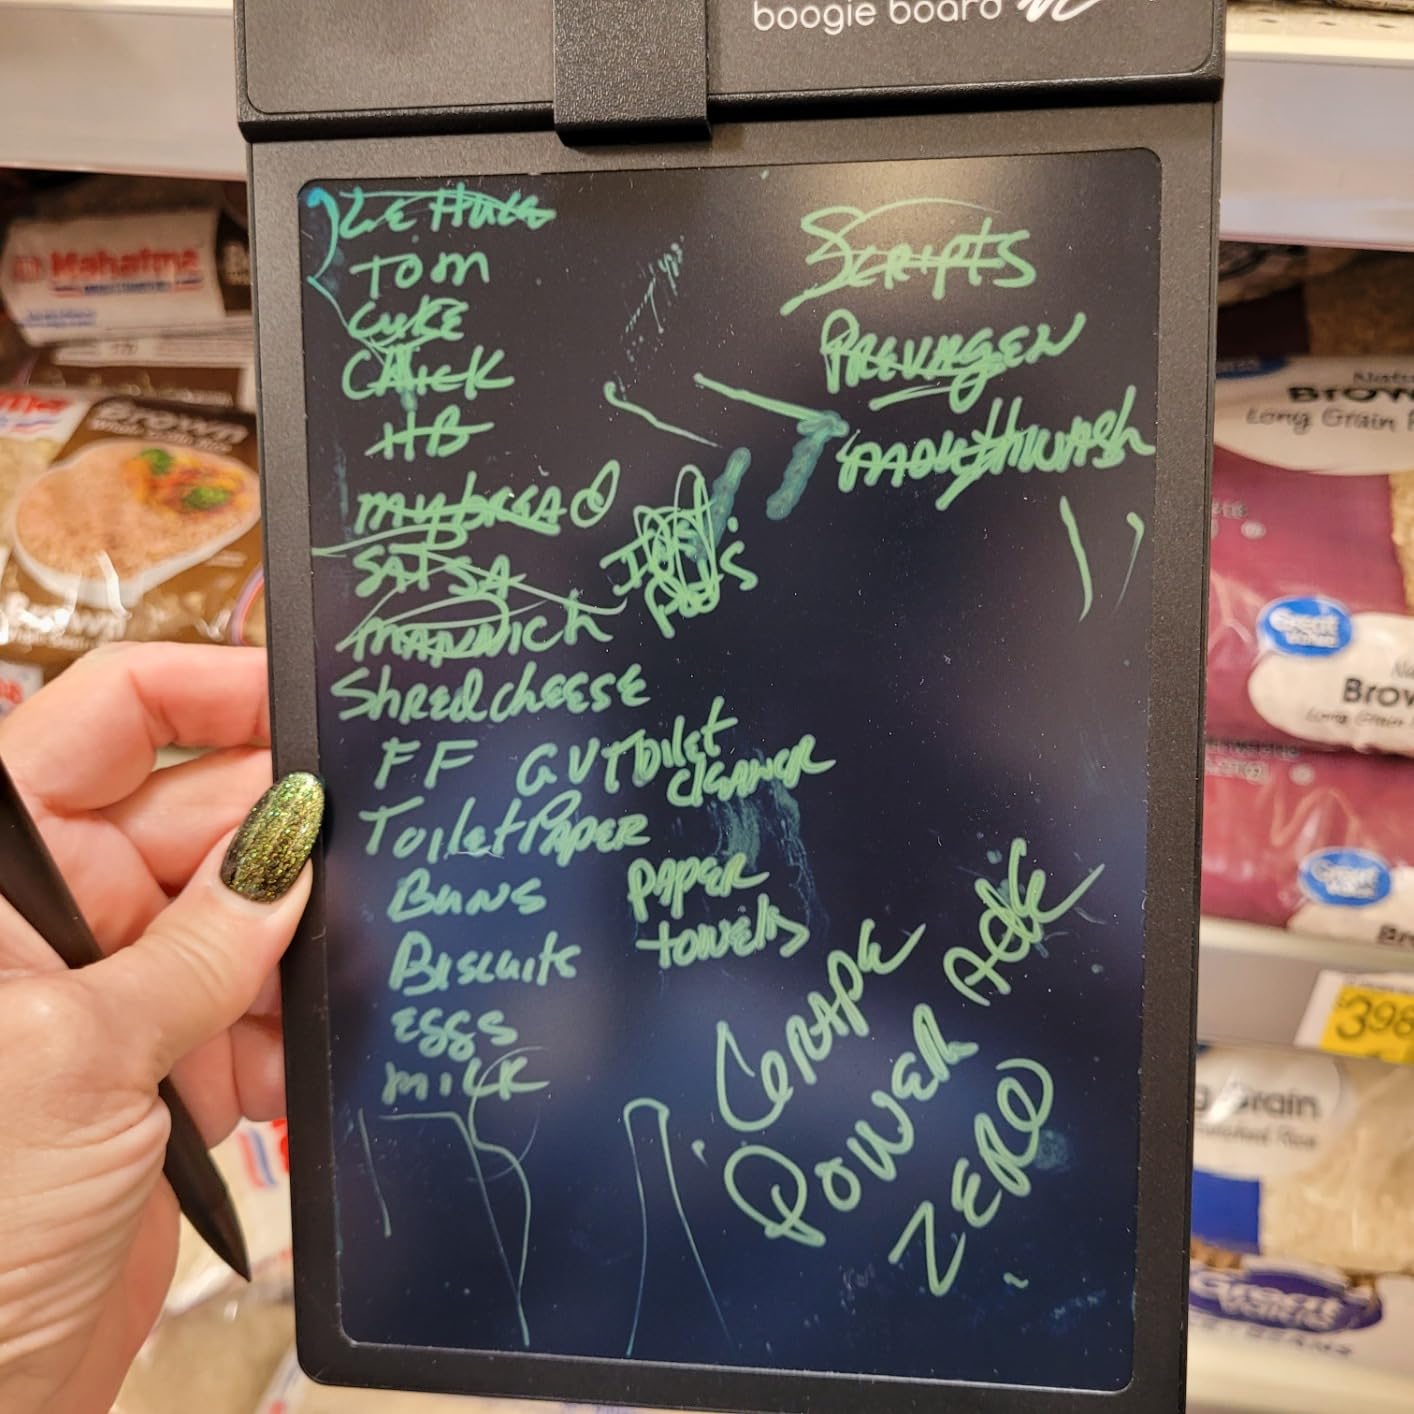 boogie board
LETTUCE
TOM
CUKE
CHICK
HB
MY BREAD
SALSA
MANWICH
PODS
Shred cheese
FF GV Toilet
cleaner
Toilet Paper
Buns
Biscuits
Eggs
MILK
Scripts
PREVAGEN
mouthwash
PAPER
towels
GRAPE
POWER ADE
ZERO
Mahatma
Brown
Brown
Long Grain
Great Value
Brow
Great Value
Bro
$3.98
Grain
Great Value